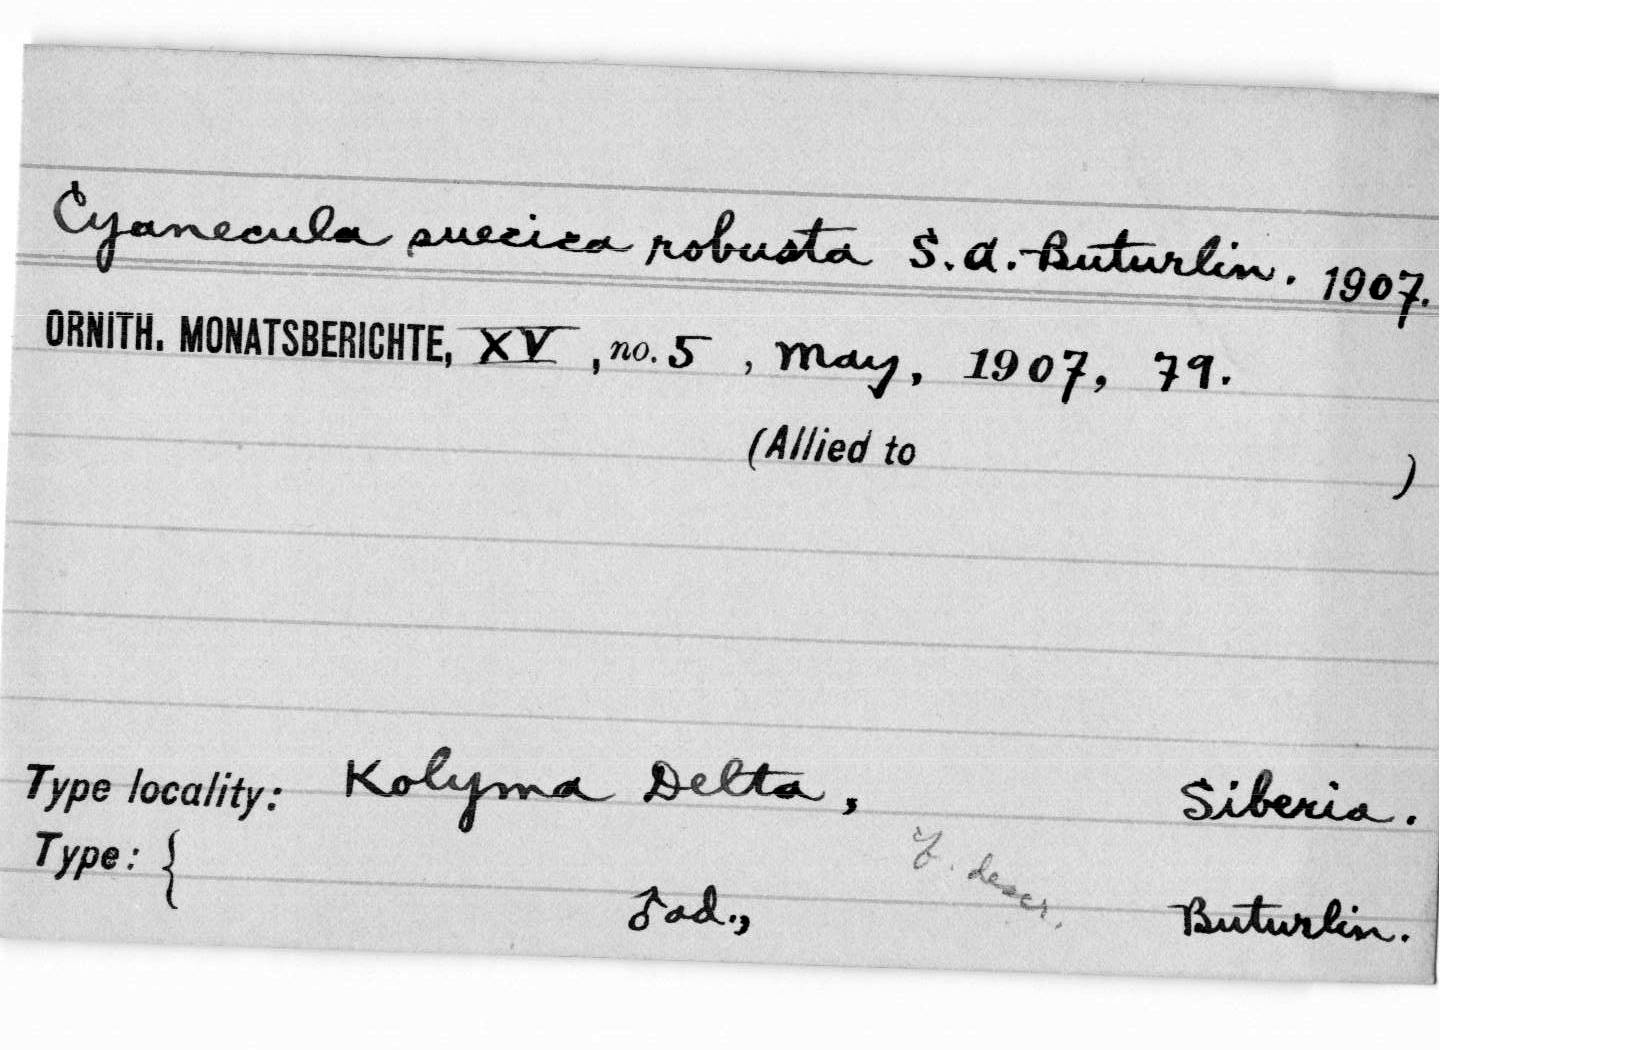 Cyanecula suecica robusta S.A. Buturlin. 1907.
ORNITH. MONATSBERICHTE, XV, no. 5, May, 1907, 79.
(Allied to )
Type locality: Kolyma Delta, Siberia.
Type: {
descr.
♂ ad., Buturlin.